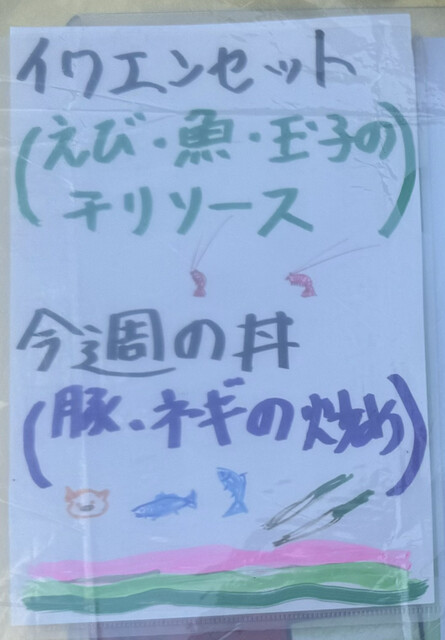 イワエンセット
(えび・魚・玉子の
チリソース
今週の丼
(豚、ネギの炒め)